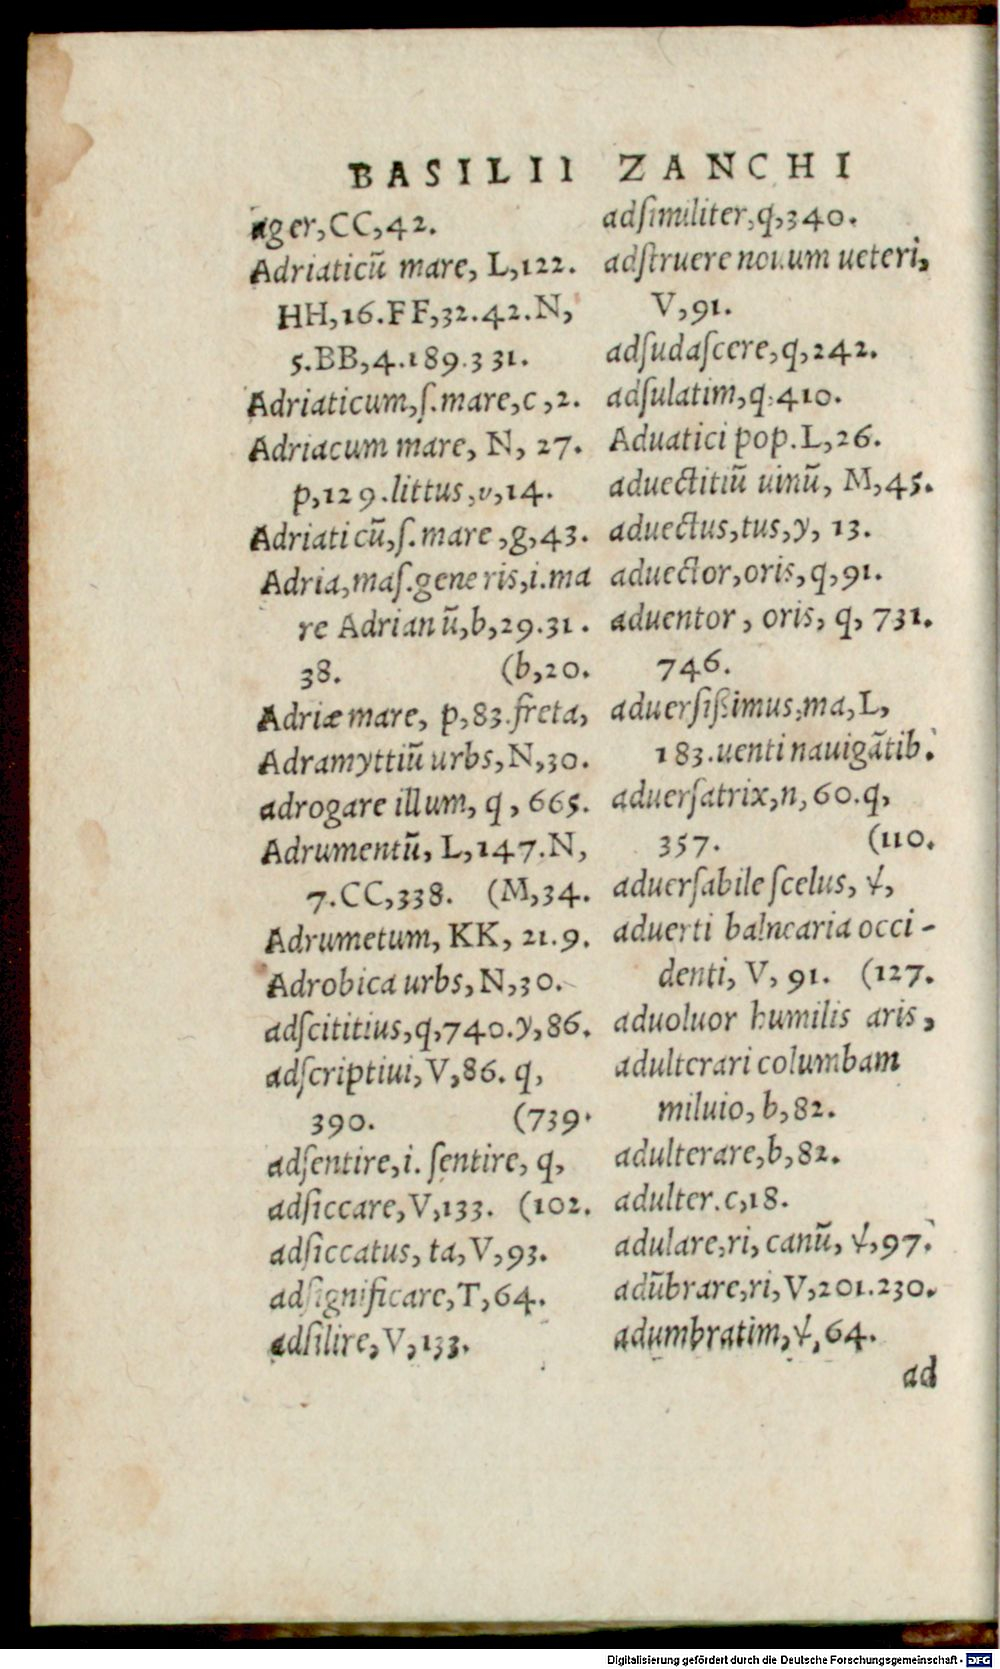 BASILII ZANCHI
ager,CC,42.
Adriaticũ mare, L,122.
HH,16.FF,32.42.N,
5.BB,4.189.331.
Adriaticum,ſ.mare,c,2.
Adriacum mare, N, 27.
p,129.littus,v,14.
Adriaticũ,ſ.mare,g,43.
Adria,maſ.generis,i.ma
re Adrianũ,b,29.31.
38. (b,20.
Adriæ mare, p,83.freta,
Adramyttiũ urbs,N,30.
adrogare illum, q, 665.
Adrumentũ, L,147.N,
7.CC,338. (M,34.
Adrumetum, KK, 21.9.
Adrobica urbs,N,30.
adſcititius,q,740.y,86.
adſcriptiui,V,86. q,
390. (739.
adſentire,i. ſentire, q,
adſiccare,V,133. (102.
adſiccatus, ta,V,93.
adſignificare,T,64.
adſilire,V,133.
adſimiliter,q,340.
adſtruere nouum ueteri,
V,91.
adſudaſcere,q,242.
adſulatim,q.410.
Aduatici pop.L,26.
aduectitiũ uinũ, M,45.
aduectus,tus,y, 13.
aduector,oris,q,91.
aduentor, oris, q, 731.
746.
aduerſißimus,ma,L,
183.uenti nauigãtib.
aduerſatrix,n,60.q,
357. (110.
aduerſabile ſcelus, ψ,
aduerti balnearia occi-
denti, V, 91. (127.
aduoluor humilis aris,
adulterari columbam
miluio,b,82.
adulterare,b,82.
adulter.c,18.
adulare,ri, canũ, ψ,97.
adũbrare,ri,V,201.230.
adumbratim,ψ,64.
ad
Digitalisierung gefördert durch die Deutsche Forschungsgemeinschaft - DFG